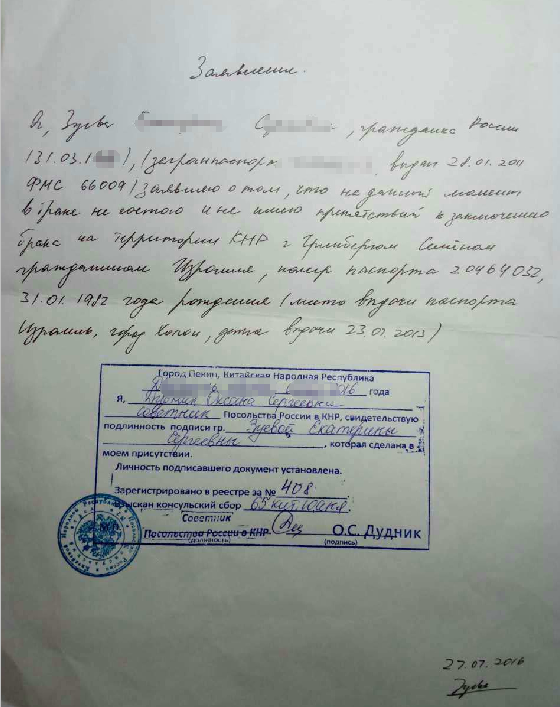 Заявление.
Я, Зуева, гражданка России
(31.03.1), (загранпаспорт выдан 28.01.2011
ФМС 66009) Заявляю о том, что на данный момент
в браке не состою и не имею препятствий к заключению
брака на территории КНР с Гринбергом Семёном
гражданином Израиля, номер паспорта 20464032,
31.01.1982 года рождения (место выдачи паспорта
Израиль, город Холон, дата выдачи 23.01.2013)
Город Пекин, Китайская Народная Республика
2016 года
Я, Дудник Оксана Сергеевна
советник Посольства России в КНР, свидетельствую
подлинность подписи гр. Зуевой Екатерины
Сергеевны, которая сделана в
моем присутствии.
Личность подписавшего документ установлена.
Зарегистрировано в реестре за № 408
Взыскан консульский сбор 65 кит. юаня
Советник
Посольства России в КНР. О.С. Дудник
(должность) (подпись)
27.07.2016
Зуева